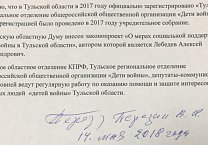 ью, что в Тульской области в 2017 году официально зарегистрировано «Тул
альное отделение общероссийской общественной организации «Дети войны»
регистрацией было проведено в 2017 году учредительное собрание.
скую областную Думу внесен законопроект «О мерах социальной поддер
войны в Тульской области», автором которой является Лебедев Алексей
андрович.
ое областное отделение КПРФ, Тульское региональное отделение
российской общественной организации «Дети войны», депутаты-коммунис
довней ведут регулярную работу по оказанию помощи и защите интерес
ых людей «детей войны» Тульской области.
14 мая 2018 года